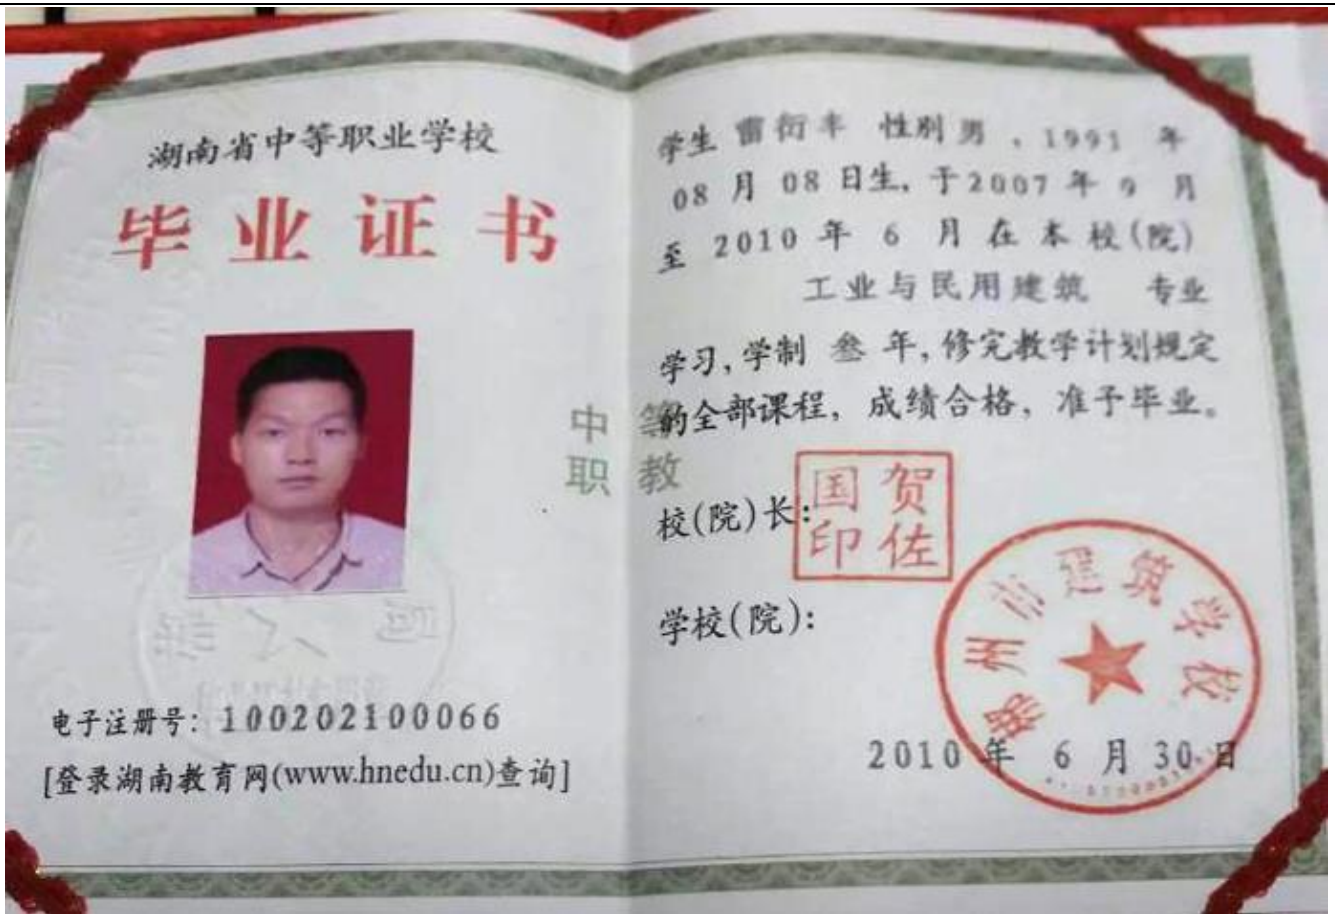 湖南省中等职业学校
毕业证书
电子注册号：100202100066
[登录湖南教育网(www.hnedu.cn)查询]
中 等
职 教
学生 雷衍丰 性别 男 ，1991 年
08 月 08 日生，于2007 年 9 月
至 2010 年 6 月 在 本 校(院)
工业与民用建筑 专业
学习，学制 叁 年，修完教学计划规定
的全部课程，成绩合格，准予毕业。
校(院)长：
贺佐国印
学校(院)：
郴州市建筑学校
2010 年 6 月 30 日